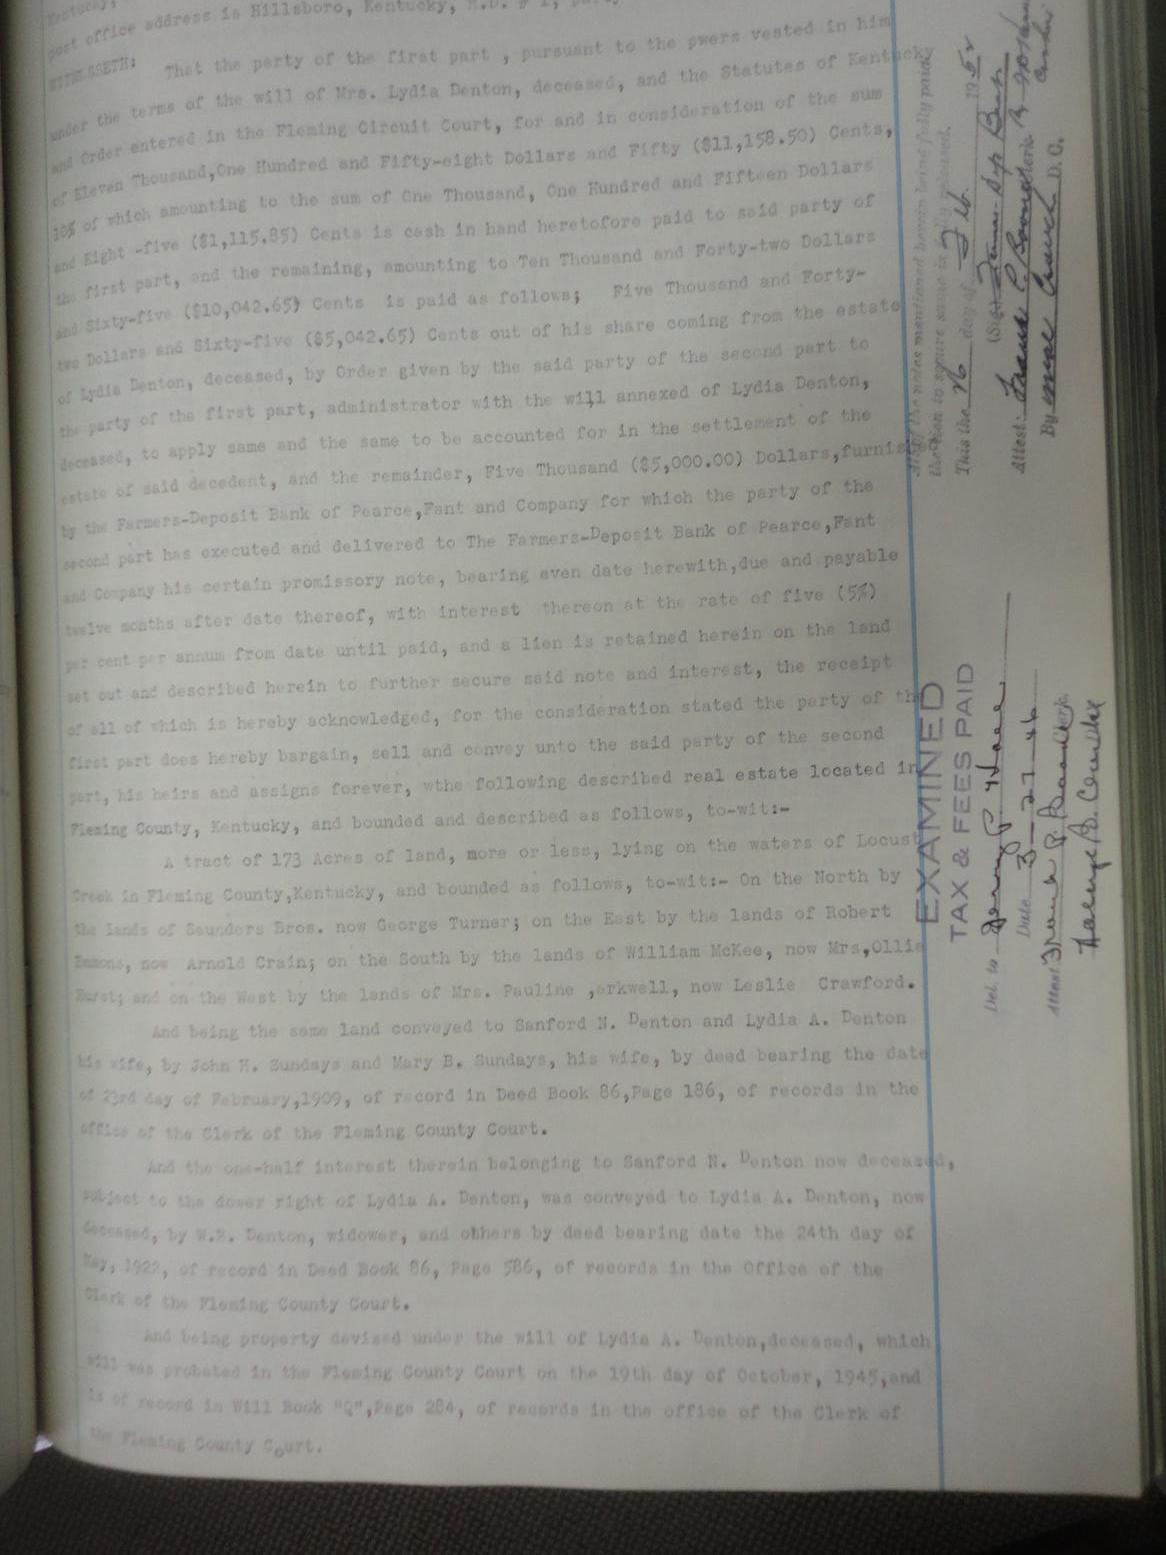 Kentucky,
post office address is Hillsboro, Kentucky, R.D. # 1,
WITNESSETH:
That the party of the first part , pursuant to the pwers vested in him
under the terms of the will of Mrs. Lydia Denton, deceased, and the Statutes of Kentucky
and Order entered in the Fleming Circuit Court, for and in consideration of the sum
of Eleven Thousand,One Hundred and Fifty-eight Dollars and Fifty ($11,158.50) Cents,
10% of which amounting to the sum of One Thousand, One Hundred and Fifteen Dollars
and Eight -five ($1,115.85) Cents is cash in hand heretofore paid to said party of
the first part, and the remaining, amounting to Ten Thousand and Forty-two Dollars
and Sixty-five ($10,042.65) Cents is paid as follows; Five Thousand and Forty-
two Dollars and Sixty-five ($5,042.65) Cents out of his share coming from the estate
of Lydia Denton, deceased, by Order given by the said party of the second part to
the party of the first part, administrator with the will annexed of Lydia Denton,
deceased, to apply same and the same to be accounted for in the settlement of the
estate of said decedent, and the remainder, Five Thousand ($5,000.00) Dollars,furnis
by the Farmers-Deposit Bank of Pearce,Fant and Company for which the party of the
second part has executed and delivered to The Farmers-Deposit Bank of Pearce,Fant
and Company his certain promissory note, bearing even date herewith,due and payable
twelve months after date thereof, with interest thereon at the rate of five (5%)
per cent per annum from date until paid, and a lien is retained herein on the land
set out and described herein to further secure said note and interest, the receipt
of all of which is hereby acknowledged, for the consideration stated the party of the
first part does hereby bargain, sell and convey unto the said party of the second
part, his heirs and assigns forever, wthe following described real estate located in
Fleming County, Kentucky, and bounded and described as follows, to-wit:-
A tract of 173 Acres of land, more or less, lying on the waters of Locust
Creek in Fleming County,Kentucky, and bounded as follows, to-wit:- On the North by
the lands of Saunders Bros. now George Turner; on the East by the lands of Robert
Emmons, now Arnold Crain; on the South by the lands of William McKee, now Mrs,Ollie
Hurst; and on the West by the lands of Mrs. Pauline ,arkwell, now Leslie Crawford.
And being the same land conveyed to Sanford N. Denton and Lydia A. Denton
his wife, by John H. Sundays and Mary B. Sundays, his wife, by deed bearing the date
of 23rd day of February,1909, of record in Deed Book 86,Page 186, of records in the
office of the Clerk of the Fleming County Court.
And the one-half interest therein belonging to Sanford N. Denton now deceased,
subject to the dower right of Lydia A. Denton, was conveyed to Lydia A. Denton, now
deceased, by W.R. Denton, widower, and others by deed bearing date the 24th day of
May, 1922, of record in Deed Book 86, Page 586, of records in the Office of the
Clerk of the Fleming County Court.
And being property devised under the will of Lydia A. Denton,deceased, which
will was probated in the Fleming County Court on the 19th day of October, 1945,and
is of record in Will Book "Q",Page 284, of records in the office of the Clerk of
the Fleming County Court.
the notes mentioned herein being fully paid,
the lien to secure same is fully released.
This the 26 day of Feb 195
(Sig)
Attest: Frank P. Clerk
By D. C.
EXAMINED
TAX & FEES PAID
Del. to
Date 3-27-46
Attest Frank P. Clerk